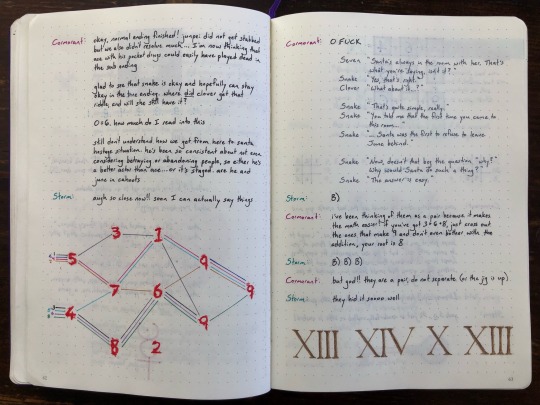 Cormorant: okay, normal ending finished! junpei did not get stabbed
but we also didn't resolve much... I'm now thinking that
ace with his pocket drugs could easily have played dead in
the sub ending
glad to see that snake is okay and hopefully can stay
okay in the true ending. where did clover get that
riddle, and will she still have it?
0=6. how much do i read into this
still don't understand how we got from here to santa
hostage situation. he's been so consistent about not even
considering betraying or abandoning people, so either he's
a better actor than ace... or it's staged. are he and
june in cahoots
Storm: augh so close now!! soon I can actually say things
3 1
5 9 9
7 6
4 9
8 2
Cormorant: O FUCK
Seven "Santa's always in the room with her. That's
what you're saying, isn't it?"
Snake "Yes, that's right."
Clover "What about it...?"
Snake "That's quite simple, really."
Snake "You told me that the first time you came to
this room...
Snake "... Santa was the first to refuse to leave
June behind."
Snake "Now, doesn't that beg the question, "why?"
Why would Santa do such a thing?"
Snake "The answer is easy."
Storm: 8)
Cormorant: i've been thinking of them as a pair because it makes
the math easier! if you've got 3+6+8, just cross out
the ones that make 9 and don't even bother with the
addition, your root is 8.
Storm: 8) 8) 8)
Cormorant: but god!! they are a pair, do not separate (or the jig is up)
Storm: they hid it soooo well
XIII XIV X XIII